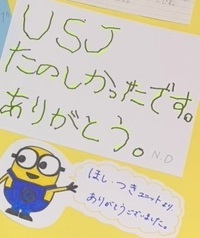 USJ
たのしかったです。
ありがとう。
N.D
ほし・つきユニットより
ありがとうございました。